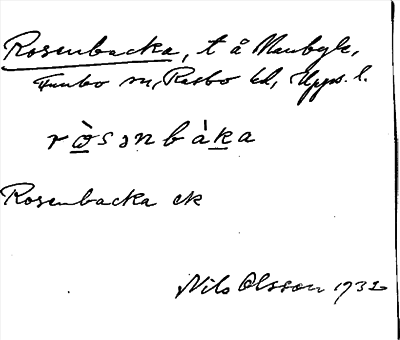 Rosenbacka, t å Marbyle,
Funbo sn, Rasbo hd, Upps. l.
ròsɘnbàka
Rosenbacka ek
Nils Olsson 1932